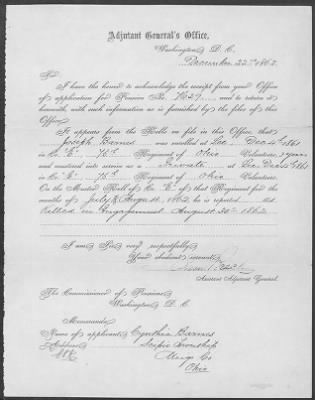 Adjutant General's Office,
Washington, D. C.
December 22nd 1862
Sir:
I have the honor to acknowledge the receipt from your Office
of application for Pension No. 7627, and to return it
herewith, with such information as is furnished by the files of this
Office.
It appears from the Rolls on file in this Office, that
Joseph Barnes was enrolled at Dec 4th 1861
in Co. "E" 76th Regiment of Ohio Volunteers, 3 years
and mustered into service as a Private at 1861
in Co. "E" 76th Regiment of Ohio Volunteers.
On the Muster Roll of Co. "E" of that Regiment for the
months of July & August, 1862, he is reported
Killed in Engagement August 30th 1862
I am Sir, very respectfully,
Your obedient servant,
Assistant Adjutant General.
The Commissioner of Pensions
Washington, D. C.
Memoranda:
Name of applicant, Cynthia Barnes
Address, Township
Co
Ohio